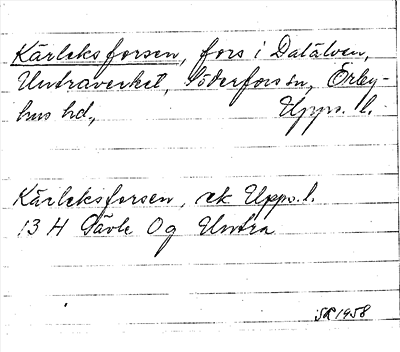 Kärleksforsen, fors i Dalälven,
Untraverket, Söderfors sn, Örby-
hus hd, Upps. l.
Kärleksforsen, ek Upps. l.
13 H Gävle Og Untra
SR 1958